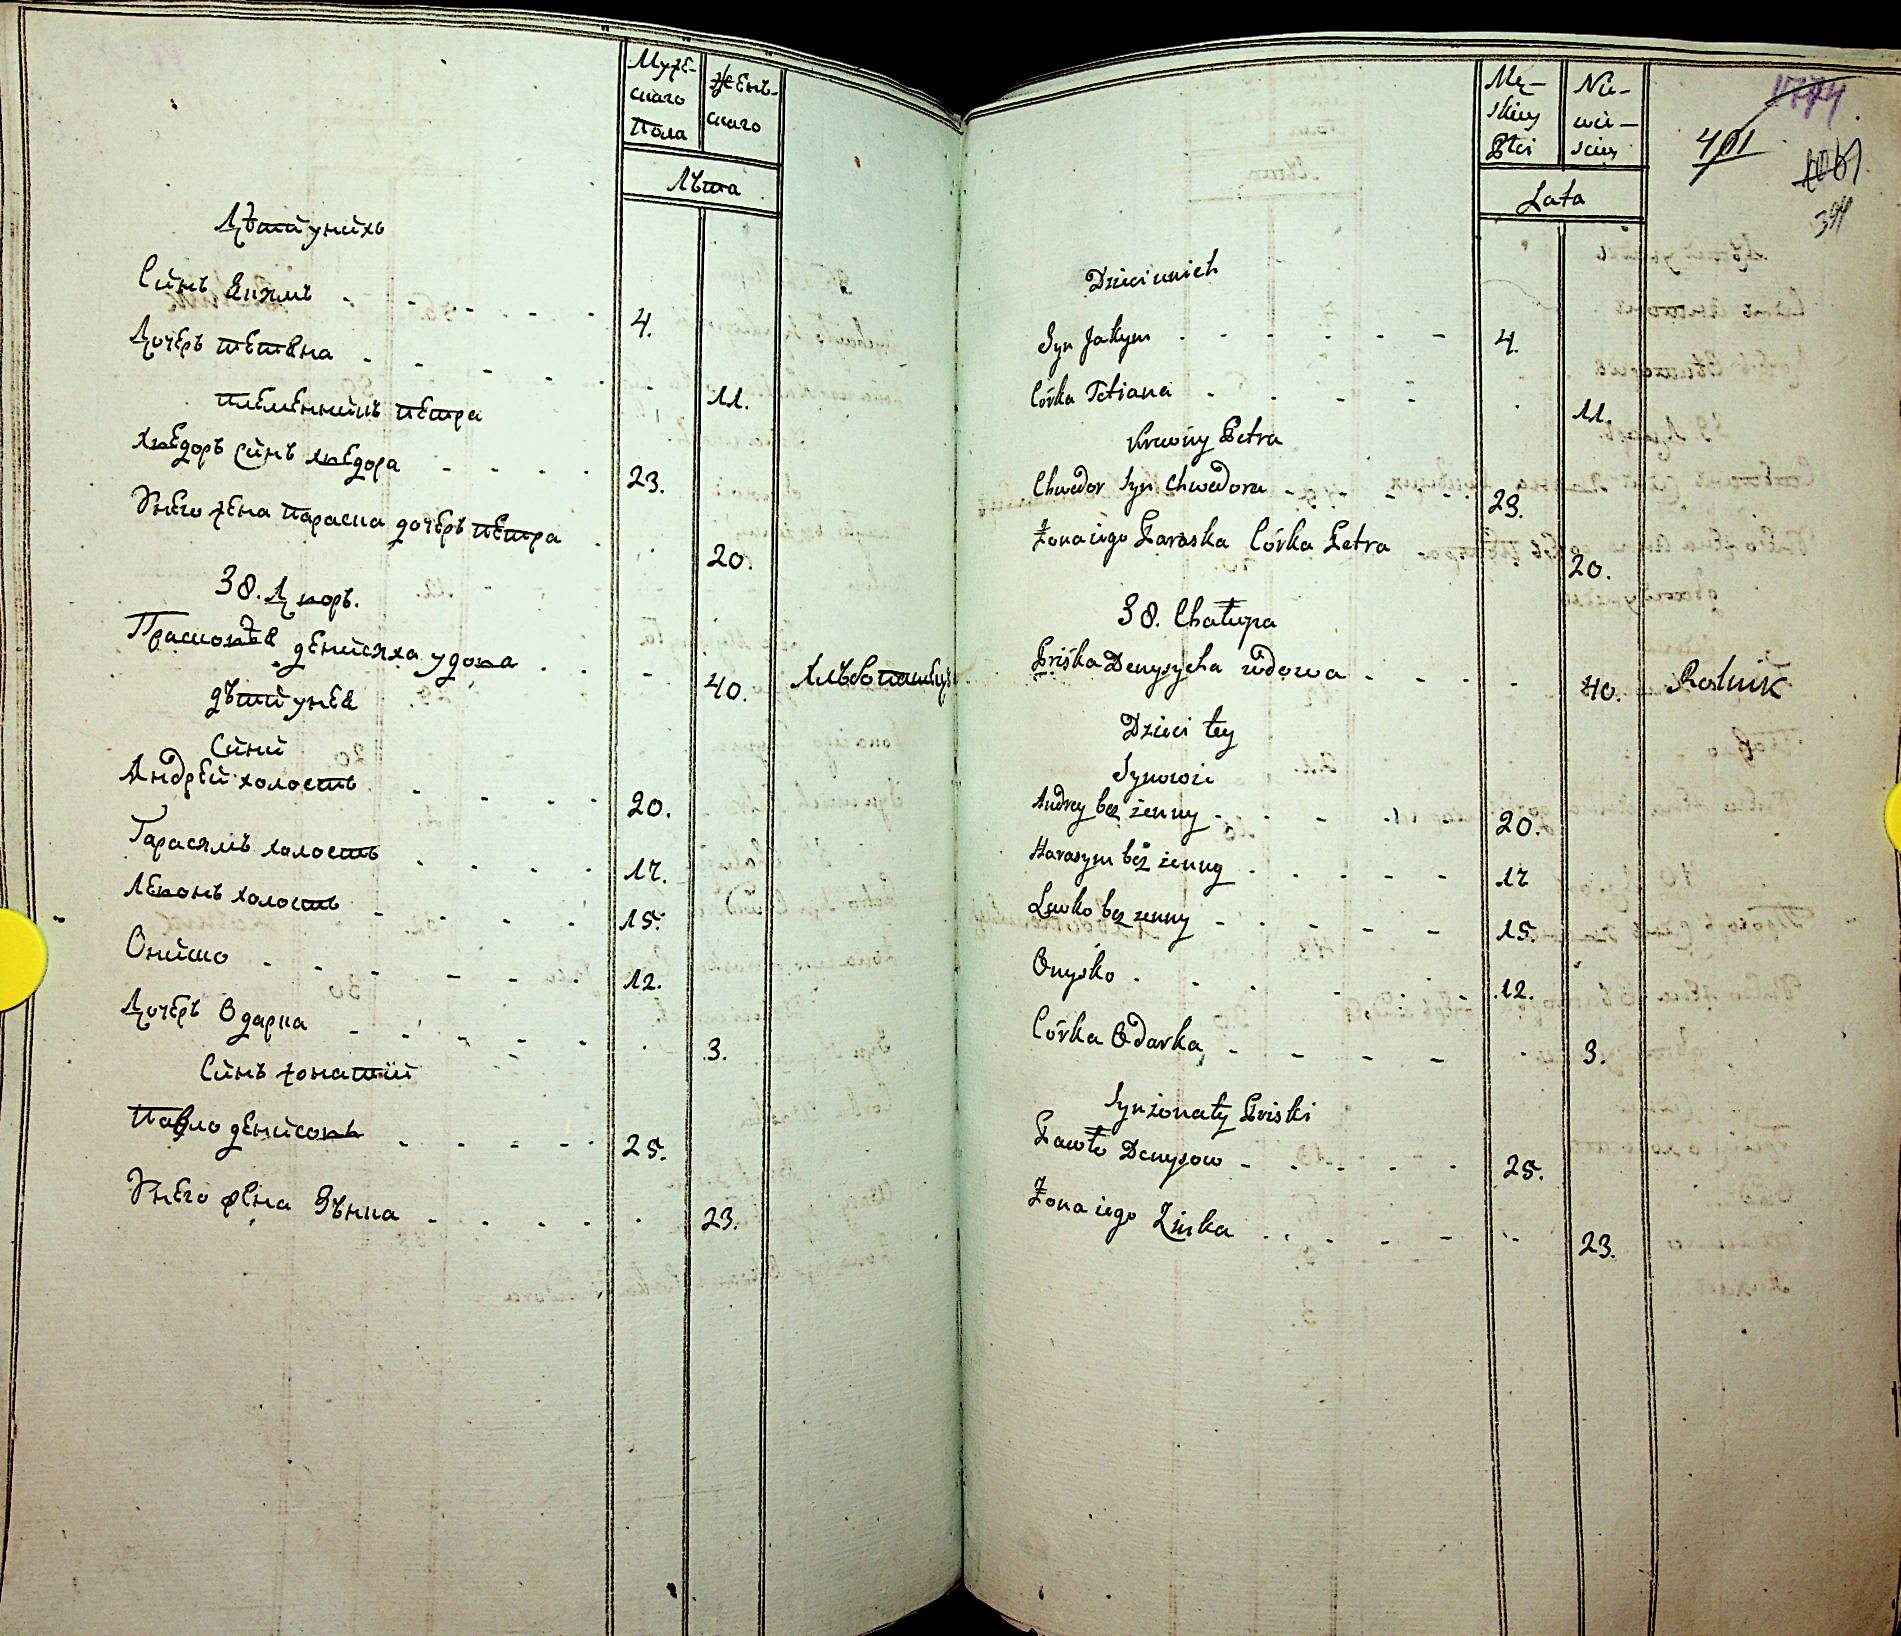 Муже-
скаго
Пола
Женъ-
скаго
Лѣта
Дѣтй унйхъ
Сйнъ Якимъ 4.
Дочеръ тѣтяна 11.
племеннйкъ петра
хведоръ сйнъ хведора 23.
Унего жена параска дочеръ петра 20.
38. Дворъ.
денисиха удова 40.
дѣтй унея
Сйнй
Андрей холостъ 20.
Гарасимъ холостъ 17.
Левонъ холостъ 15.
Онйско 12.
Дочеръ Одарка 3.
Сйнъ жонатій
Павло денйсовъ 25.
Унего жена Зѣнка 23.
Mę-
skiey
Płci
Nie-
wie-
sciey
Lata
401
394
Dzieci unich
Syn Jakym 4.
Córka Tetiana 11.
Krewny Petra
Chwedor Syn Chwedora 23.
Żona iego Paraska Córka Petra 20.
38. Chałupa
Priśka Denysycha wdowa 40. Rolnik
Dzieci tey
Synowie
Andrey bez żenny 20.
Harasym bez żenny 17
Lewko bez żenny 15.
Onyśko 12.
Córka Odarka 3.
Syn żonaty Priski
Pawło Denysow 25.
Żona iego Zinka 23.